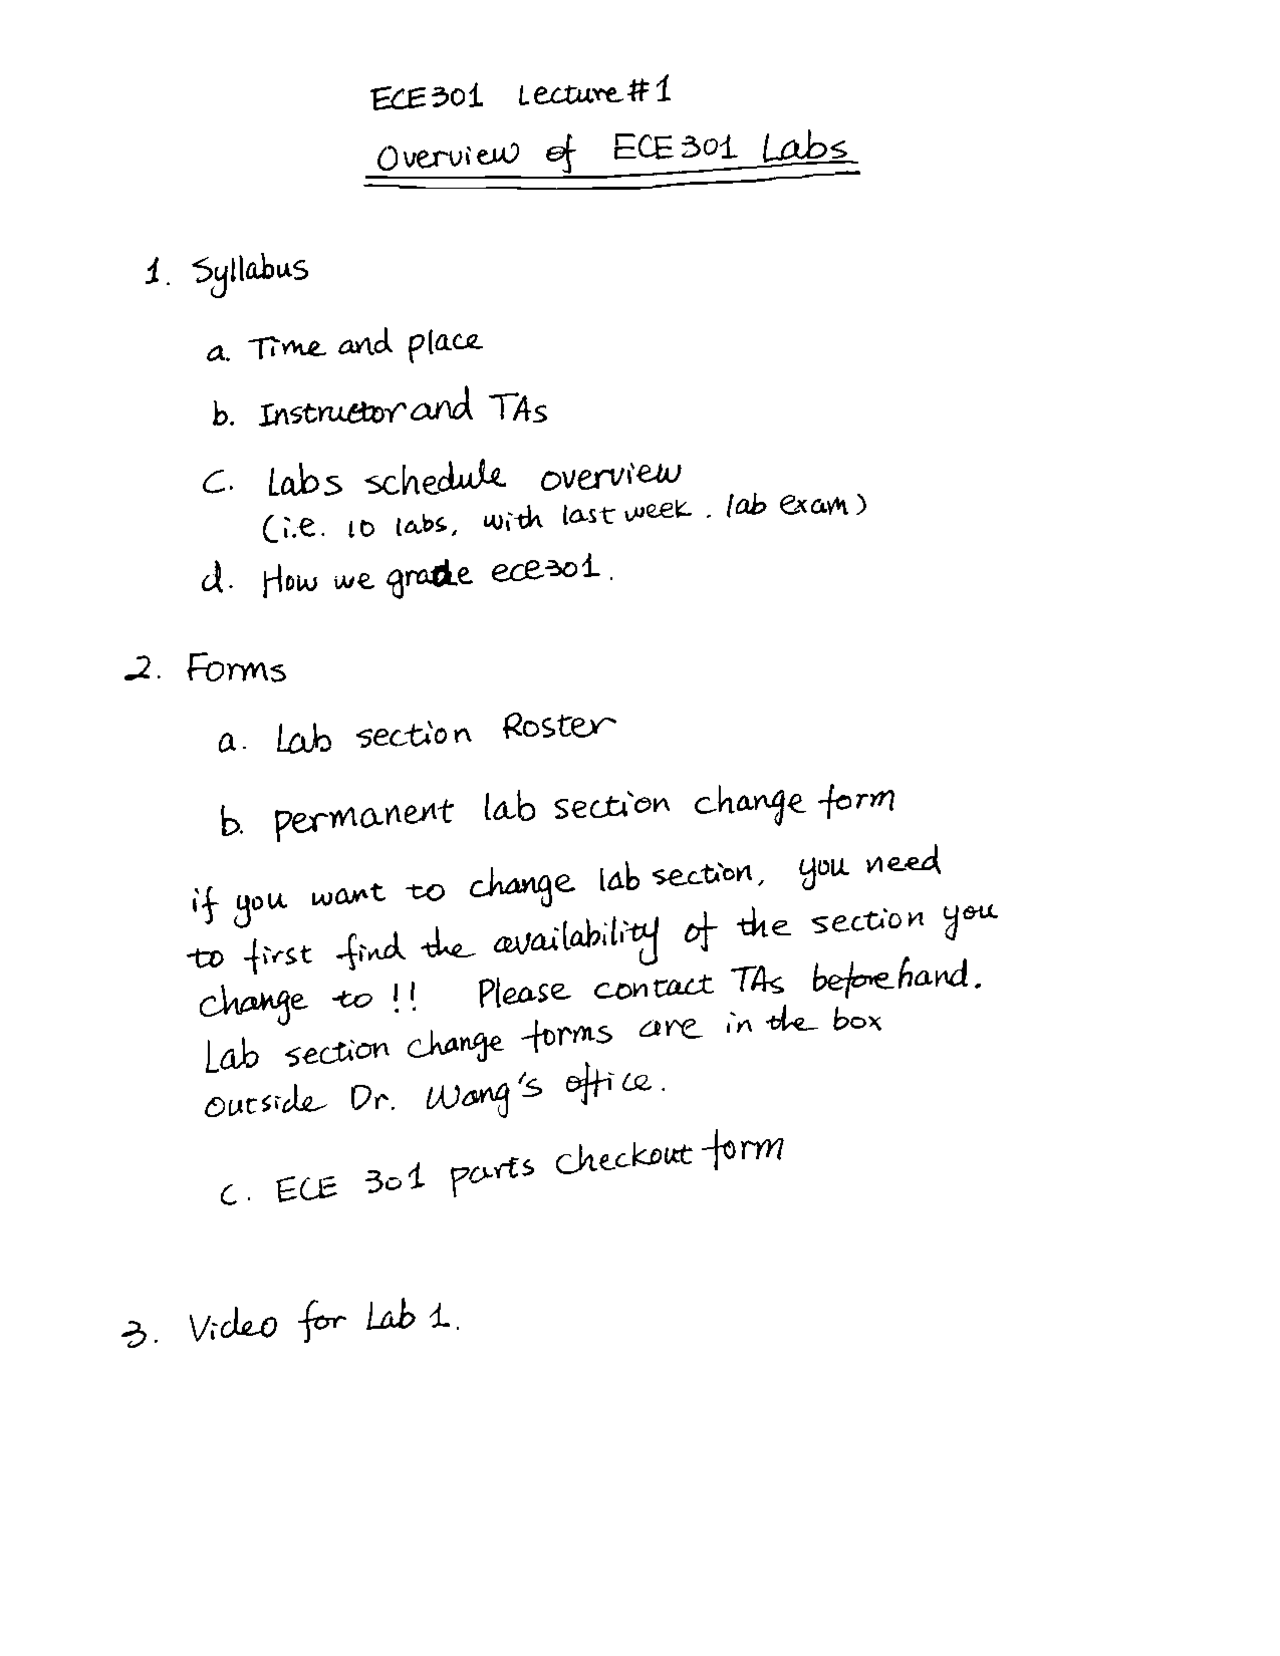 ECE301 Lecture #1
Overview of ECE301 Labs
1. Syllabus
a. Time and place
b. Instructor and TAs
C. Labs schedule overview
(i.e. 10 labs, with last week. lab exam)
d. How we grade ece301.
2. Forms
a. Lab section Roster
b. permanent lab section change form
if you want to change lab section, you need
to first find the availability of the section you
change to !! Please contact TAs beforehand.
Lab section change forms are in the box
outside Dr. Wang's office.
C. ECE 301 parts checkout form
3. Video for Lab 1.